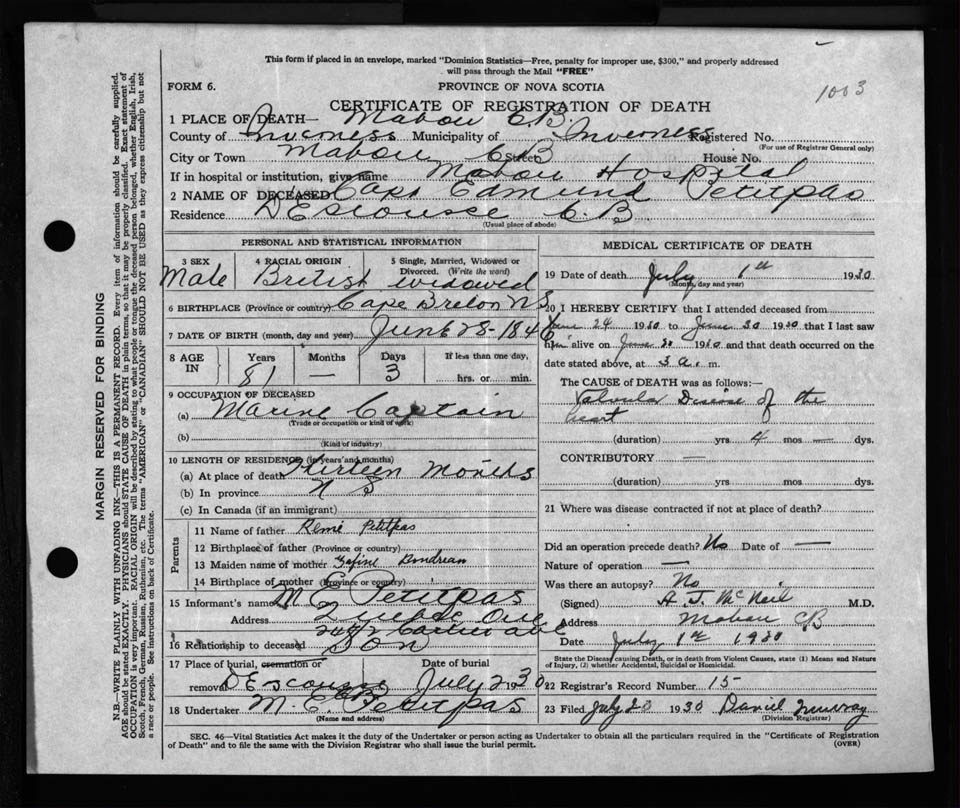 This form if placed in an envelope, marked "Dominion Statistics—Free, penalty for improper use, $300," and properly addressed
will pass through the Mail "FREE"
FORM 6.
PROVINCE OF NOVA SCOTIA
1003
CERTIFICATE OF REGISTRATION OF DEATH
1 PLACE OF DEATH— Mabou C.B.
County of Inverness Municipality of Inverness Registered No.
(For use of Registrar General only)
City or Town Mabou CB Street House No.
If in hospital or institution, give name Mabou Hospital
2 NAME OF DECEASED Capt Edmund Petitpas
Residence DEscousse C.B
(Usual place of abode)
PERSONAL AND STATISTICAL INFORMATION
3 SEX Male
4 RACIAL ORIGIN British
5 Single, Married, Widowed or Divorced. (Write the word) widowed
6 BIRTHPLACE (Province or country) Cape Breton N S
7 DATE OF BIRTH (month, day and year) June 28-184
8 AGE IN Years 81 Months — Days 3 If less than one day, hrs. or min.
9 OCCUPATION OF DECEASED
(a) Marine Captain
(Trade or occupation or kind of work)
(b)
(Kind of industry)
10 LENGTH OF RESIDENCE (in years and months)
(a) At place of death Thirteen Months
(b) In province N S
(c) In Canada (if an immigrant)
Parents
11 Name of father Remi Petitpas
12 Birthplace of father (Province or country)
13 Maiden name of mother
14 Birthplace of mother (Province or country)
15 Informant's name M. E. Petitpas
Address Ave
16 Relationship to deceased Son
17 Place of burial, cremation or removal DEscousse CB
Date of burial July 2 1930
18 Undertaker M. E. Petitpas
(Name and address)
MEDICAL CERTIFICATE OF DEATH
19 Date of death July 1st 1930
(Month, day and year)
20 I HEREBY CERTIFY that I attended deceased from
June 24 1930 to June 30 1930 that I last saw
him alive on June 30 1930 and that death occurred on the
date stated above, at 3 a. m.
The CAUSE OF DEATH was as follows:—
Valvular Disease of the
heart
(duration) yrs 4 mos — dys.
CONTRIBUTORY —
(duration) yrs. mos. dys.
21 Where was disease contracted if not at place of death?
Did an operation precede death? No Date of —
Nature of operation —
Was there an autopsy? No
(Signed) A. J. McNeil M.D.
Address Mabou CB
Date July 1st 1930
State the Disease causing Death, or in death from Violent Causes, state (1) Means and Nature
of Injury, (2) whether Accidental, Suicidal or Homicidal.
22 Registrar's Record Number 15
23 Filed July 20 1930 Daniel Murray
(Division Registrar)
SEC. 46—Vital Statistics Act makes it the duty of the Undertaker or person acting as Undertaker to obtain all the particulars required in the "Certificate of Registration
of Death" and to file the same with the Division Registrar who shall issue the burial permit.
(OVER)
MARGIN RESERVED FOR BINDING
N.B.—WRITE PLAINLY WITH UNFADING INK—THIS IS A PERMANENT RECORD. Every item of information should be carefully supplied.
AGE should be stated EXACTLY. PHYSICIANS should STATE CAUSE OF DEATH in plain terms, so that it may be properly classified. Exact statement of
OCCUPATION is very important. RACIAL ORIGIN will be described by stating to what people or tongue the deceased person belonged, whether English, Irish,
Scotch, French, German, Russian, Ruthenian, etc. The terms "AMERICAN" or "CANADIAN" SHOULD NOT BE USED as they express citizenship but not
a race or people. See instructions on back of Certificate.